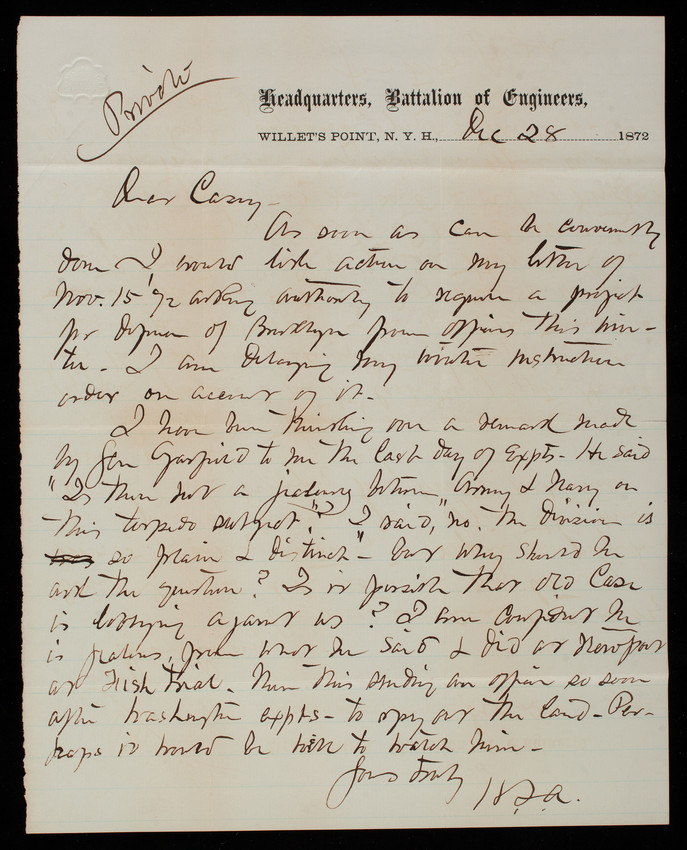 Private
Headquarters, Battalion of Engineers,
WILLET'S POINT, N. Y. H., Dec 28 1872
Dear Casey -
As soon as can be conveniently
done I would like action on my letter of
Nov. 15 '72 asking authority to require a project
for defense of Brooklyn from officers this win-
ter - I am delaying my winter instruction
order on account of it -
I have been thinking over a remark made
by Gen Garfield to me the last day of Expts - He said
"Is there not a jealousy between Army & Navy on
this torpedo subject?" I said, "no. The division is
so plain & distinct" - but why should he
ask the question? Is it possible that old Case
is lobbying against us? I am confident he
is jealous, from what he said & did at Newport
at Fish trial. Then this sending an officer so soon
after Washington expts - to spy out the land - Per-
haps it would be well to watch him -
Yours truly
H L A.